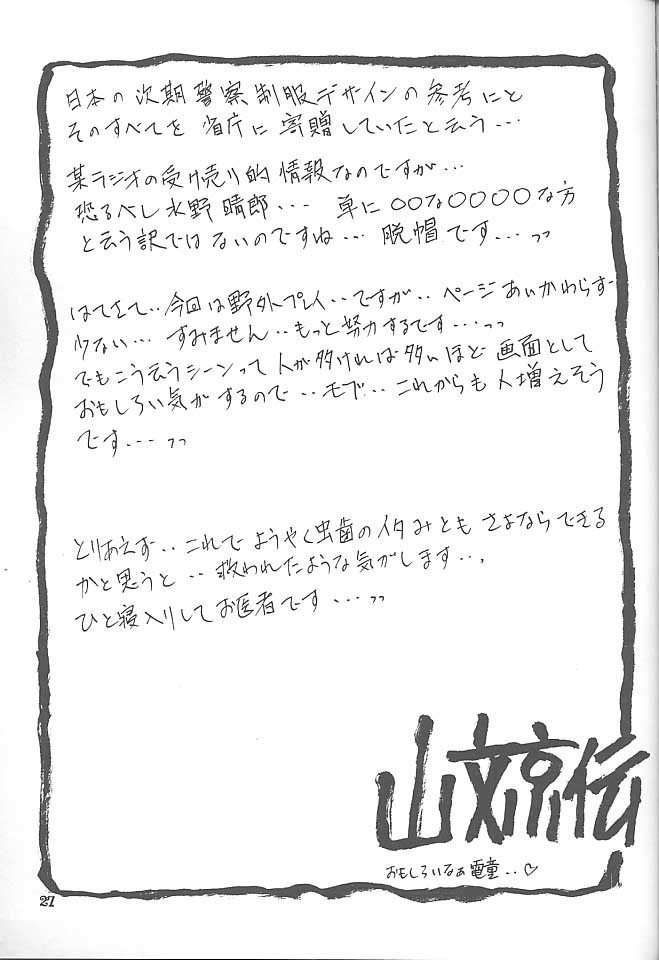 日本の次期警察制服デザインの参考にと
そのすべてを省庁に寄贈していたと云う…
某ラジオの受け売り的情報なのですが…
恐るべし水野晴郎… 単に○○な○○○○な方
と云う訳ではないのですね… 脱帽です…っっ
はてさて‥今回は野外プレイ‥ですが‥ページあいかわらず
少ない… すみません‥もっと努力するです…っっ
でもこう云うシーンって人が多ければ多いほど画面として
おもしろい気がするので‥モブ‥これからも人増えそう
です…っっ
とりあえず‥これでようやく虫歯のイタみともさよならできる
かと思うと‥救われたような気がします‥.
ひと寝入りしてお医者です…っっ
山文京伝
おもしろいなぁ電童‥♡
27